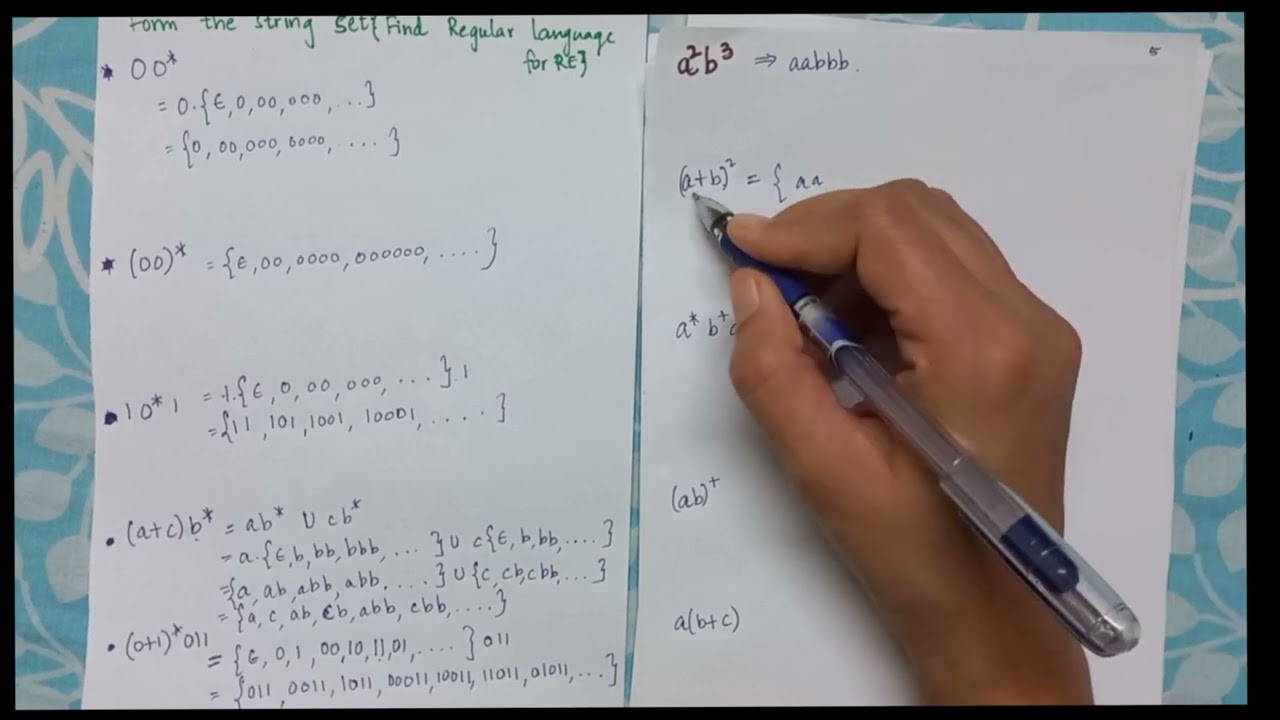 Form the string set{Find Regular language
for RE}
* 00*
= 0.{ε,0,00,000,...}
= {0, 00,000,0000,....}
* (00)* = {ε,00,0000,000000,....}
• 10*1 = 1.{ε,0,00,000,...}.1
= {11,101,1001,10001,....}
• (a+c)b* = ab* ∪ cb*
= a.{ε,b,bb,bbb,...} ∪ c{ε,b,bb,....}
={a, ab,abb,abb,....}∪{c,cb,cbb,...}
= {a,c,ab,cb,abb,cbb,....}
• (0+1)*011
= {ε,0,1,00,10,11,01,....}011
= {011,0011,1011,00011,10011,11011,01011,...}
a²b³ ⇒ aabbb.
(a+b)² = { aa
a* b+
(ab)+
a(b+c)